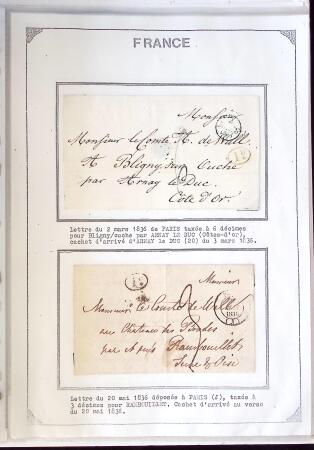 FRANCE
Monsieur
Monsieur le Comte A. de Wall
A Bligny sur Ouche
par Arnay le Duc.
Côte d'Or.
Lettre du 2 mars 1836 de PARIS taxée à 6 décimes
pour Bligny/ouche par ARNAY LE DUC (Côtes-d'or),
cachet d'arrivé d'ARNAY le DUC (20) du 3 mars 1836.
Monsieur
Monsieur le Comte de Wall
au Château des
par et près Rambouillet
Seine & Oise
1836
Lettre du 20 mai 1836 déposée à PARIS (J), taxée à
3 décimes pour RAMBOUILLET. Cachet d'arrivé au verso
du 20 mai 1836.